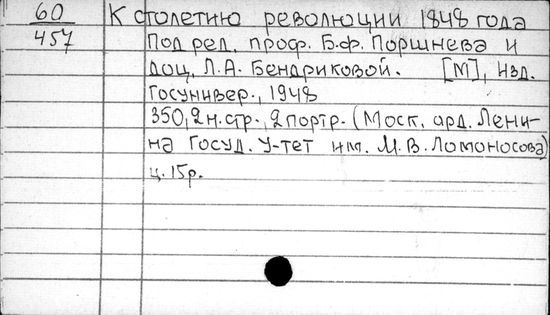 60 К столетию революции 1848 года
457 Под ред. проф. Б.Ф. Поршнева и
доц. Л.А. Бендриковой. [М], Изд.
Госунивер., 1948
350, 2 н. стр., 2 портр. (Моск. орд. Лени-
на Госуд. У-тет им. М.В. Ломоносова)
ц. 15р.